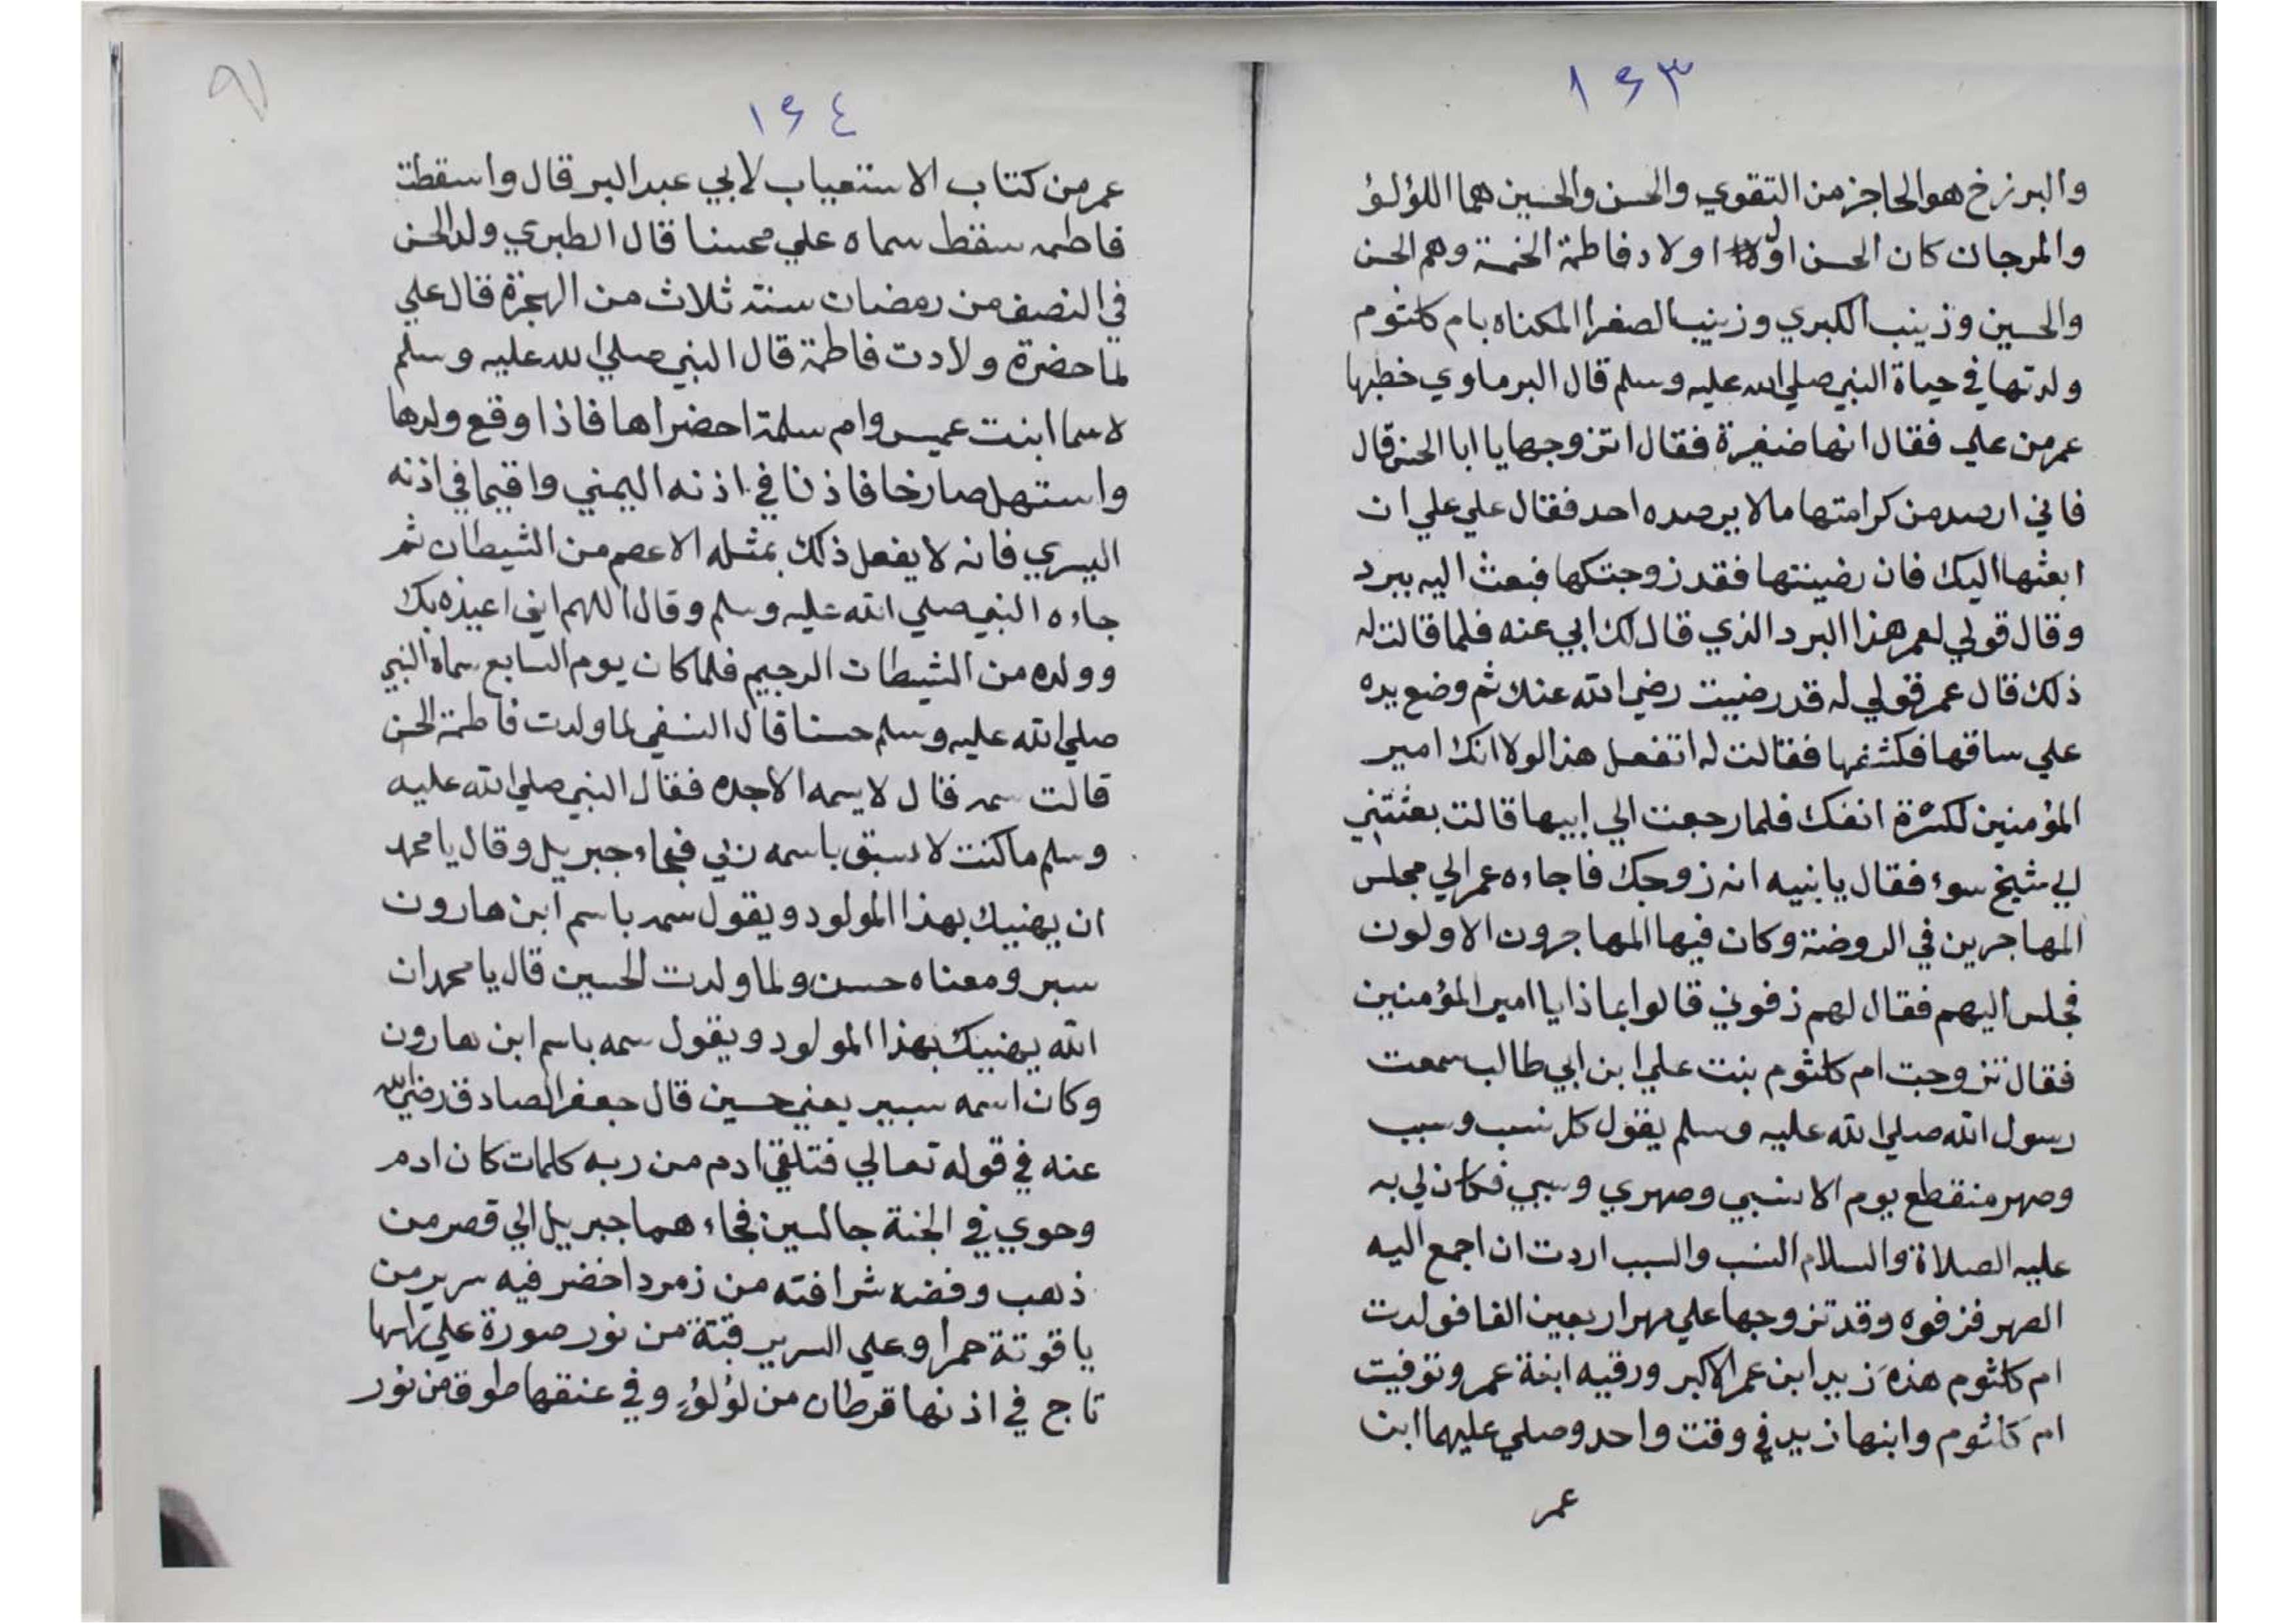 ١٦٣
والبرزخ هو الحاجز من التقوي والحسن والحسين هما اللؤلؤ
والمرجان كان الحسن اول اولاد فاطمة الخمسة وهم الحسن
والحسين وزينب الكبري وزينب الصغرا المكناه بام كلثوم
ولدتها في حياة النبي صلي الله عليه وسلم قال البرماوي خطبها
عمر من علي فقال انها صغيرة فقال اتزوجها يا ابا الحسن قال
فاني ارصد من كرامتها مالا يرصده احد فقال علي علي ان
ابعثها اليك فان رضيتها فقد زوجتكها فبعث اليه ببرد
وقال قولي لعمر هذا البرد الذي قال لك ابي عنه فلما قالت له
ذلك قال عمر قولي له قد رضيت رضي الله عنك ثم وضع يده
علي ساقها فكشفها فقالت له اتفعل هذا لولا انك امير
المؤمنين لكسرة انفك فلما رجعت الي ابيها قالت بعثتني
الي شيخ سوء فقال يا بنيه انه زوجك فاجاءه عمر الي مجلس
المهاجرين في الروضة وكان فيها المهاجرون الاولون
فجلس اليهم فقال لهم زفوني قالوا بماذا يا امير المؤمنين
فقال تزوجت ام كلثوم بنت علي ابن ابي طالب سمعت
رسول الله صلي الله عليه وسلم يقول كل نسب وسبب
وصهر منقطع يوم الا نسبي وصهري وسببي فكان لي به
عليه الصلاة والسلام النسب والسبب اردت ان اجمع اليه
الصهر فزفوه وقد تزوجها علي مهر اربعين الفا فولدت
ام كلثوم هذه زيد ابن عمر الاكبر ورقيه ابنة عمر وتوفيت
ام كلثوم وابنها زيد في وقت واحد وصلي عليهما ابن
عمر
٩١
١٦٤
عمر من كتاب الاستعياب لابي عبد البر قال واسقطت
فاطمه سقط سماه علي محسنا قال الطبري ولد الحسن
في النصف من رمضان سنة ثلاث من الهجرة قال علي
لما حضرة ولادت فاطمة قال النبي صلي الله عليه وسلم
لاسما ابنت عميس وام سلمة احضراها فاذا وقع ولدها
واستهل صارخا فاذنا في اذنه اليمني واقيما في اذنه
اليسري فانه لا يفعل ذلك بمثله الا عصم من الشيطان ثم
جاءه النبي صلي الله عليه وسلم وقال اللهم اني اعيذه بك
وولده من الشيطان الرجيم فلما كان يوم السابع سماه النبي
صلي الله عليه وسلم حسنا قال النسفي لما ولدت فاطمة الحسن
قالت سمه فقال لا يسمه الا جده فقال النبي صلي الله عليه
وسلم ما كنت لاسبق باسمه ربي فجاء جبريل وقال يا محمد
ان يهنيك بهذا المولود ويقول سمه باسم ابن هارون
سبر ومعناه حسن ولما ولدت الحسين قال يا محمد ان
الله يهنيك بهذا المولود ويقول سمه باسم ابن هارون
وكان اسمه سبير يعني حسين قال جعفر الصادق رضي الله
عنه في قوله تعالي فتلقي ادم من ربه كلمات كان ادم
وحوي في الجنة جالسين فجاءهما جبريل الي قصر من
ذهب وفضه شرافته من زمرد اخضر فيه سرير من
ياقوتة حمرا وعلي السرير قبة من نور صورة علي راسها
تاج في اذنها قرطان من لؤلؤ وفي عنقها طوق من نور